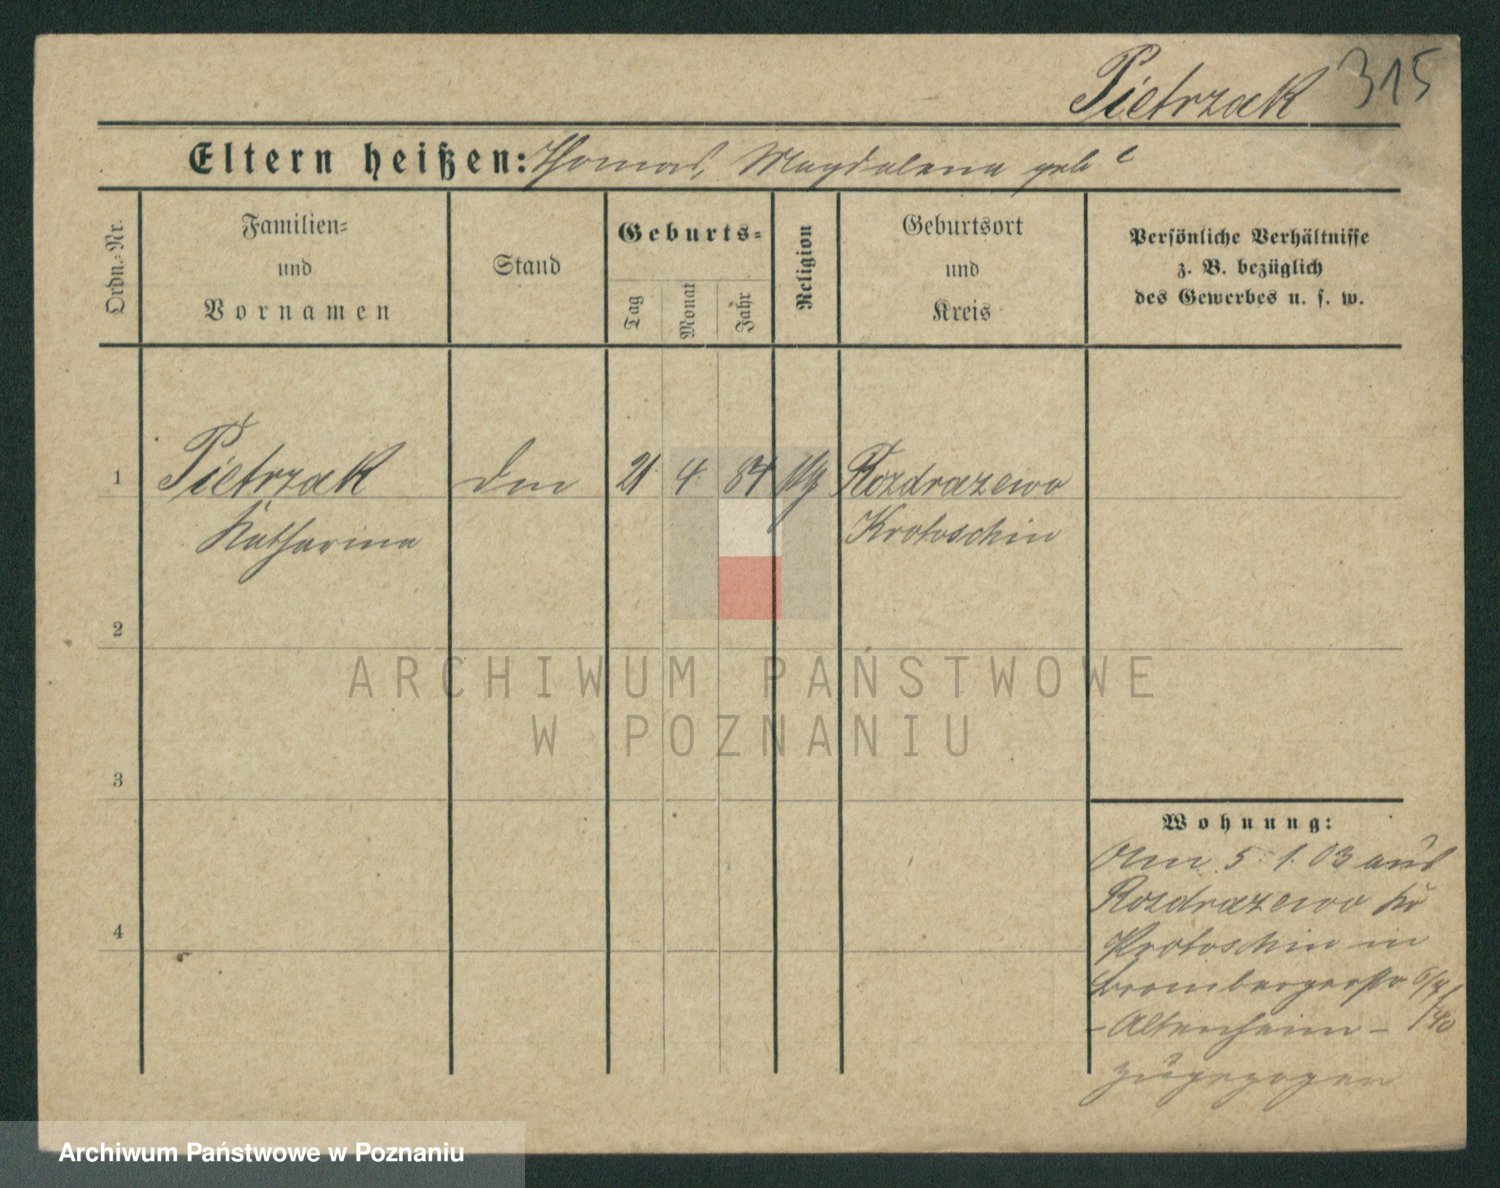 Pietrzak 315
Eltern heißen: Thomas, Magdalena geb
Ordn.-Nr.
Familien-
und
Vornamen
Stand
Geburts-
Tag
Monat
Jahr
Religion
Geburtsort
und
Kreis
Persönliche Verhältnisse
z. B. bezüglich
des Gewerbes u. s. w.
1 Pietrzak 21 4 84 Rozdrazewo
Katharina Krotoschin
2
3
4
Wohnung:
5. 1. 03 aus
Rozdrazewo Kr
Krotoschin in
Brombergerstr
- Altenheim -
zugezogen
ARCHIWUM PAŃSTWOWE
W POZNANIU
Archiwum Państwowe w Poznaniu